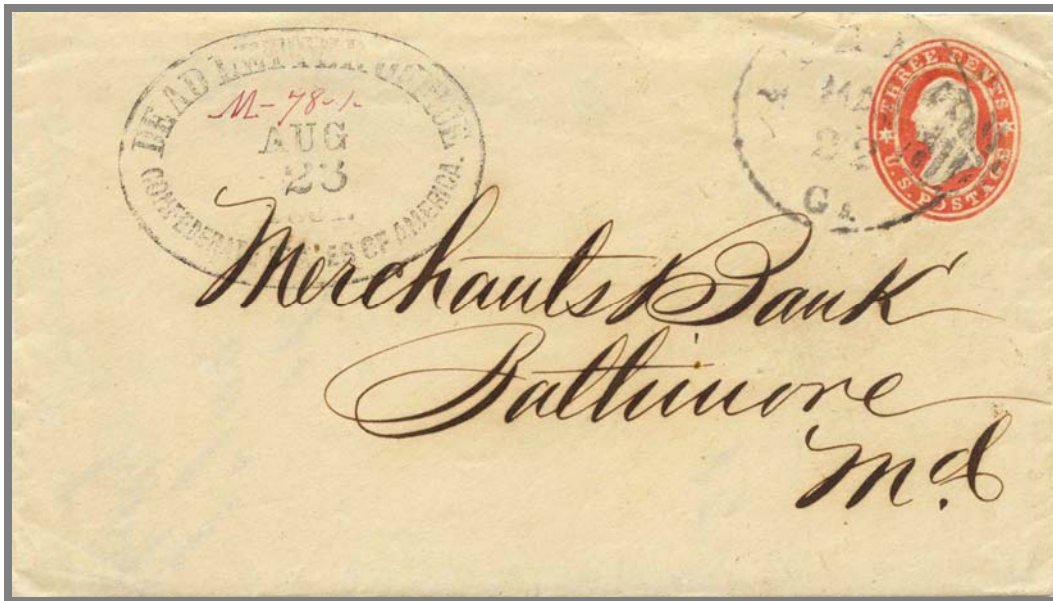 DEAD LETTER OFFICE.
M-781.
AUG
23
CONFEDERATE STATES OF AMERICA.
22
Ga.
THREE CENTS
U.S. POSTAGE
Merchants Bank
Baltimore
Md